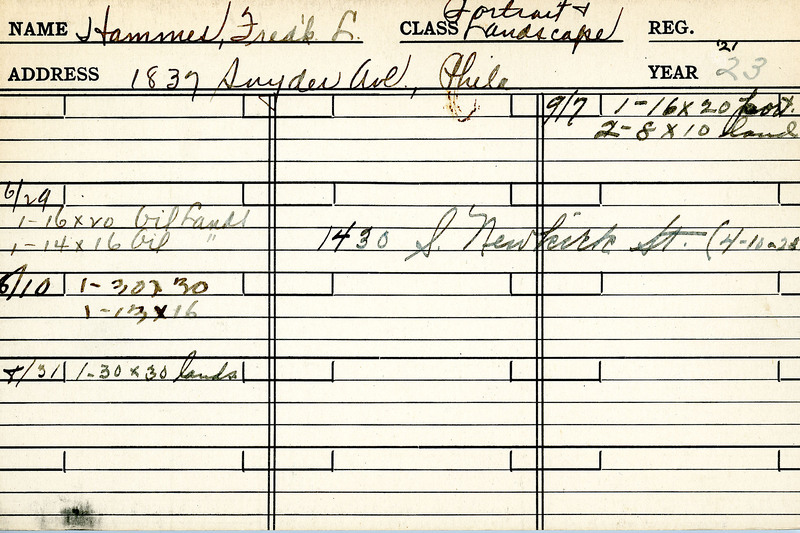 NAME Hammes, Fred'k L. CLASS Portrait & Landscape REG.
ADDRESS 1837 Snyder Ave., Phila YEAR '21 23
9/7 1-16x20 port.
2-8x10 land
6/29
1-16x20 Oil Lands
1-14x16 Oil "
1430 S. Newkirk St. (4-10-23
6/10 1-30x30
1-13x16
/31 1-30x30 lands